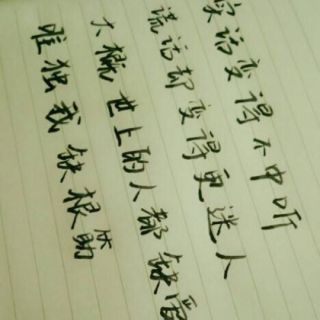 实话变得不中听
谎话却变得更迷人
大概世上的人都缺
唯独我缺根筋